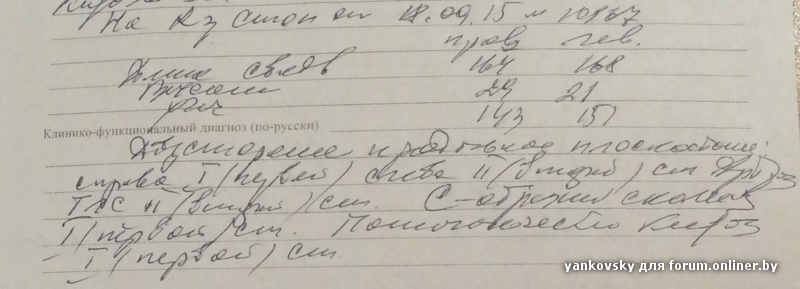 На Rg стоп от 18.09.15 № 10967
прав. лев.
Длина сводов 164 168
Высота 29 21
угол 143 151
Клинико-функциональный диагноз (по-русски)
Двустороннее продольное плоскостопие:
справа I (первой) слева II (второй) ст. Артроз
ТНС II (второй) ст. С-образный сколиоз
I (первой) ст. Патологический кифоз
I (первой) ст.
yankovsky для forum.onliner.by